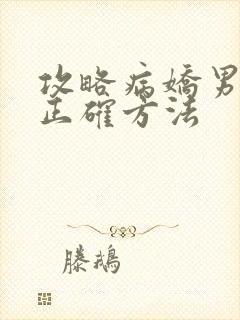 攻略病嬌男
正確方法
滕鵝